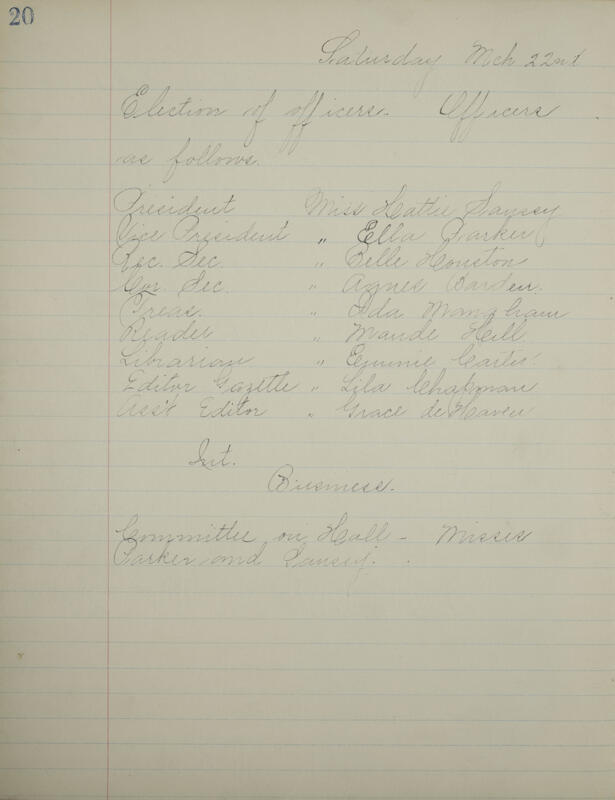 20
Saturday Mch 22nd
Election of officers. Officers
as follows.
President Miss Hattie Sausey
Vice President " Ella Parker
Rec. Sec. " Belle Houston
Cor. Sec. " Agnes Barden.
Treas. " Ida Mangham
Reader " Maude Hill
Librarian " Emmie
Editor Gazette " Lila Chapman
Ass't Editor " Grace de Haven
Int.
Business.
Committee on Hall - Misses
Parker and Sausey.